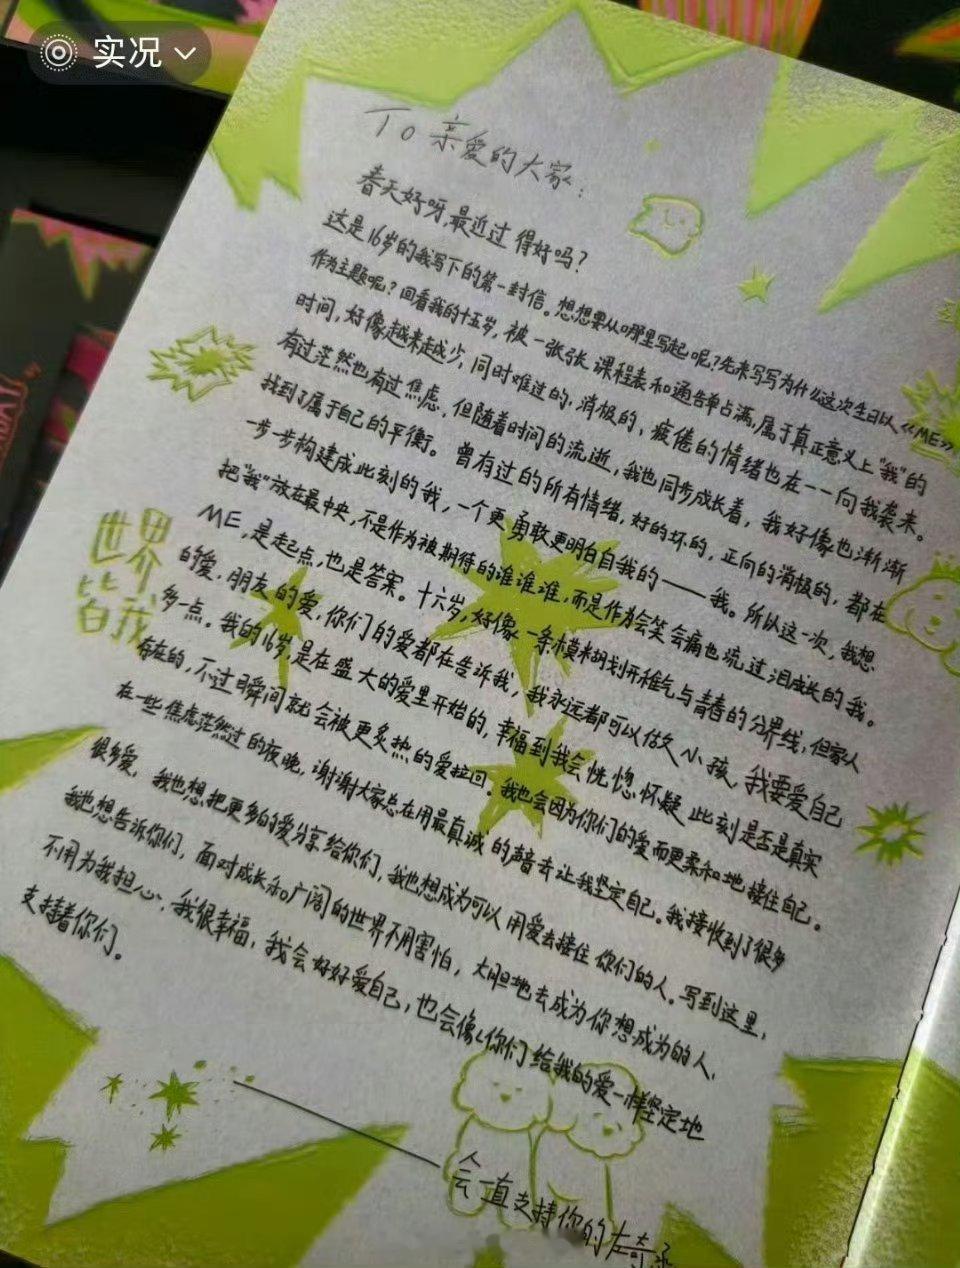 实况
To 亲爱的大家：
春天好呀，最近过得好吗？
这是16岁的我写下的第一封信。想想要从哪里写起呢？先来写写为什么这次生日以《ME》
作为主题呢？回看我的十五岁，被一张张课程表和通告单占满，属于真正意义上“我”的
时间，好像越来越少，同时难过的，消极的，疲倦的情绪也在一一向我袭来。
有过茫然也有过焦虑，但随着时间的流逝，我也同步成长着，我好像也渐渐
找到了属于自己的平衡。曾有过的所有情绪，好的坏的，正向的消极的，都在
一步步构建成此刻的我，一个更勇敢更明白自我的——我。所以这一次，我想
把“我”放在最中央，不是作为被期待的谁谁谁，而是作为会笑会痛也流过泪成长的我。
ME，是起点，也是答案。十六岁，好像一条模糊划开稚气与青春的分界线，但家人
的爱，朋友的爱，你们的爱都在告诉我，我永远都可以做个小孩，我要爱自己
多一点。我的16岁，是在盛大的爱里开始的，幸福到我会恍惚怀疑此刻是否是真实
存在的，不过瞬间就会被更多热的爱拉回。我也会因为你们的爱而更柔和地接住自己。
在一些焦虑茫然过的夜晚，谢谢大家总在用最真诚的声音去让我坚定自己。我接收到了很多
很多爱，我也想把更多的爱分享给你们，我也想成为可以用爱去接住你们的人。写到这里，
我也想告诉你们，面对成长和广阔的世界不用害怕，大胆地去成为你想成为的人，
不用为我担心，我很幸福，我会好好爱自己，也会像你们给我的爱一样坚定地
支持着你们。
世界
皆我
会一直支持你的左奇函